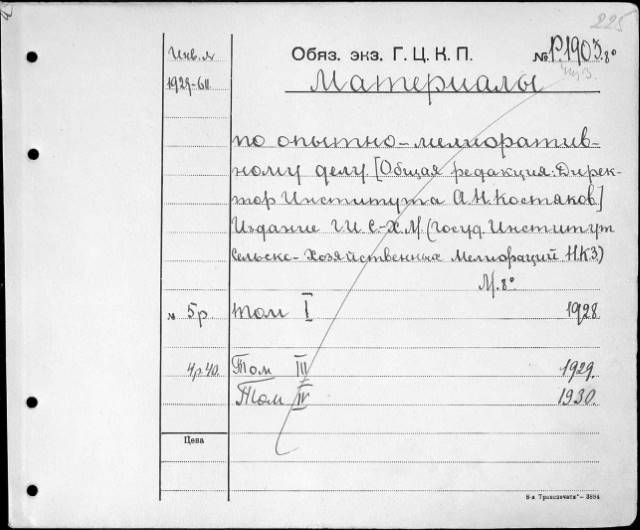 225
Инв. №
Обяз. экз. Г. Ц. К. П. № Р.1903.8°
1929-611 Материалы
по опытно-мелиоратив-
ному делу. [Общая редакция: Дирек-
тор Института А.Н. Костяков]
Издание Г.И.С.-Х.М. (Госуд. Институт
Сельско-Хозяйственных Мелиораций Н.К.З)
М. 8°
№ 5р. том I 1928
4р.40. Том III 1929.
Том IV 1930.
Цена
8-я Транспечати - 3884